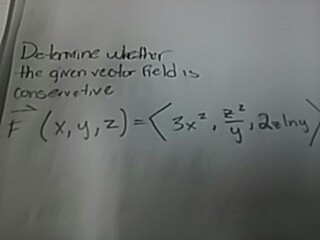 Determine whether
the given vector field is
conservative
F⃗ (x,y,z)=⟨3x², z²/y, 2z ln y⟩